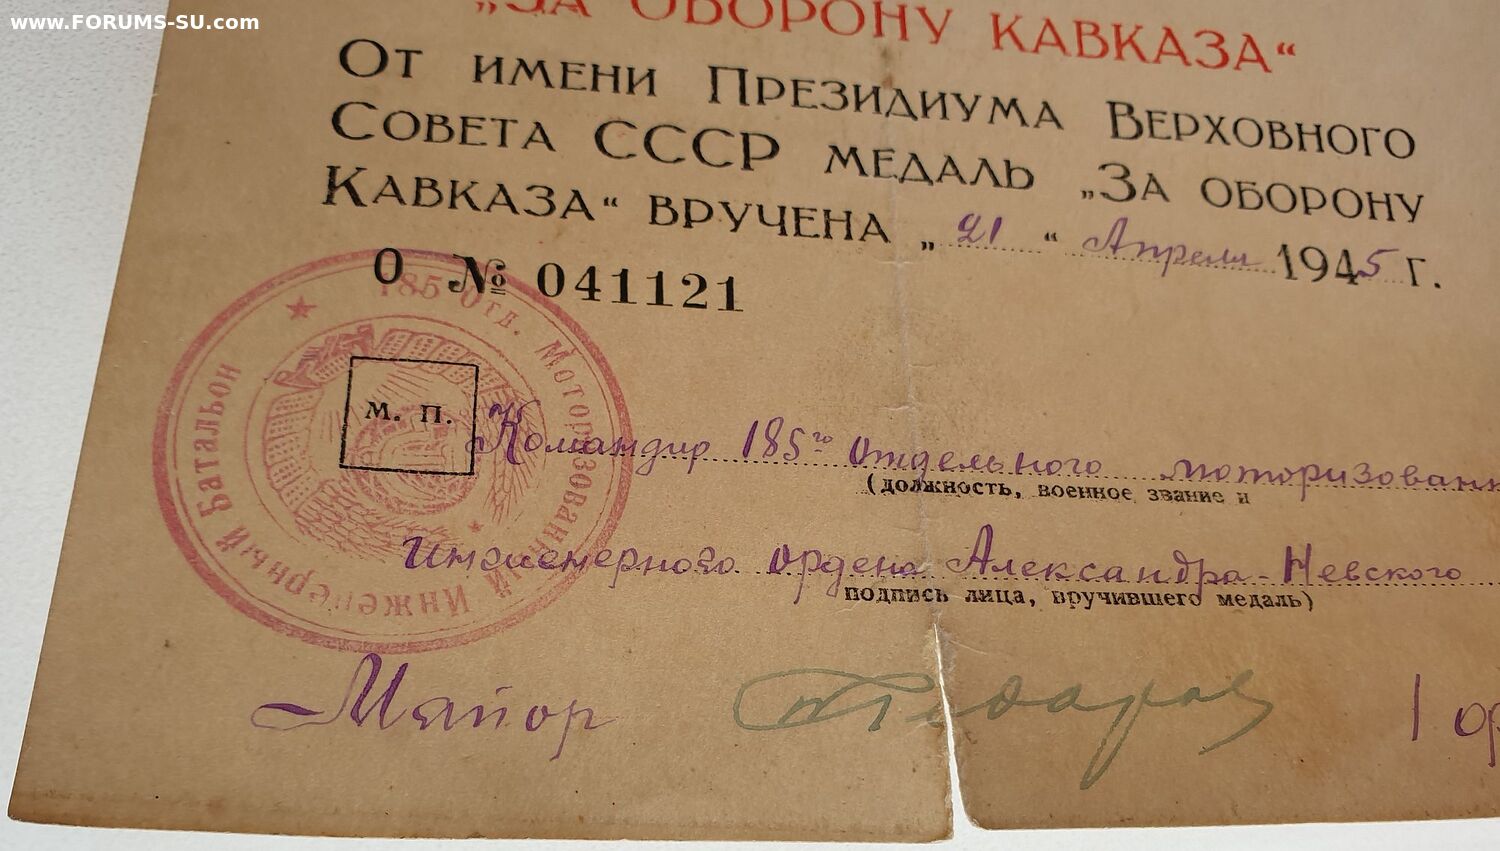 www.FORUMS-SU.com
„ЗА ОБОРОНУ КАВКАЗА“
От имени Президиума Верховного
Совета СССР медаль „За оборону
Кавказа“ вручена „21“ Апреля 1945 г.
О № 041121
185 Отд. Моторизованный Инженерный Батальон
М. П.
Командир 185го отдельного моторизован
(должность, военное звание и
инженерного ордена Александра-Невского
подпись лица, вручившего медаль)
Майор